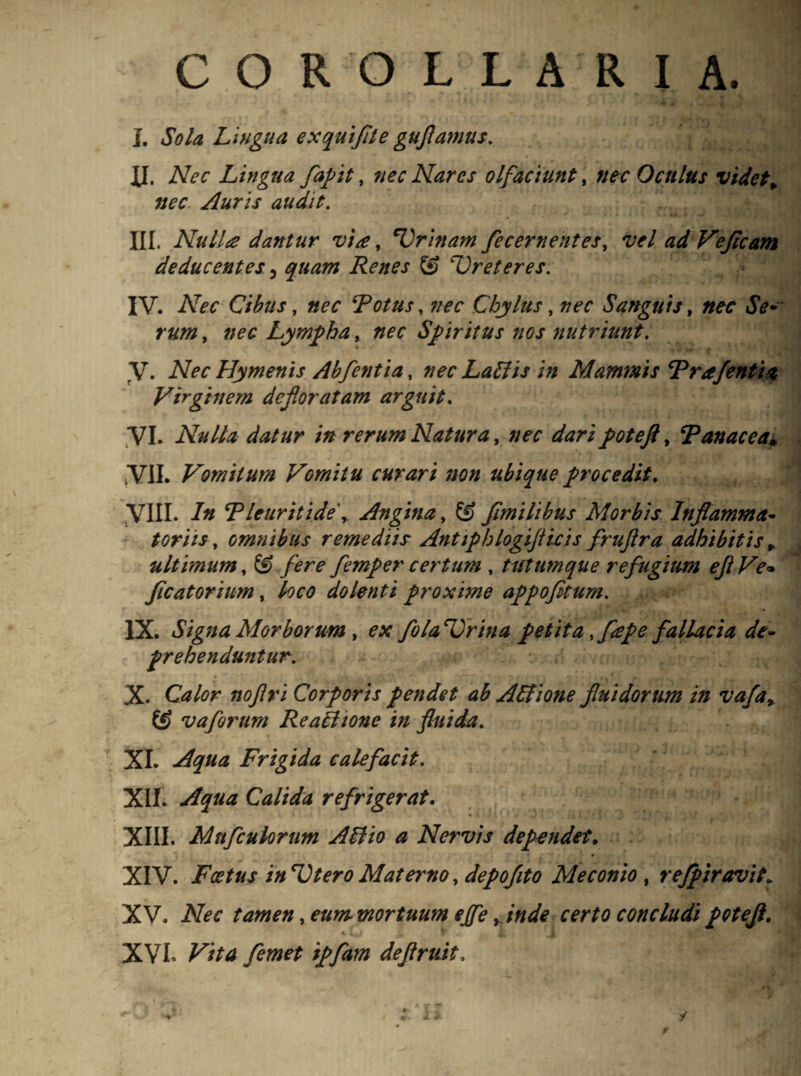 COROLLARIA.
I. Sola Lingua exquiſite guſtamus.
II. Nec Lingua ſapit, nec Nares olfaciunt, nec Oculus videt,
nec Auris audit.
III. Nullæ dantur viæ, Vrinam ſecernentes, vel ad Veſicam
deducentes, quam Renes & Vreteres.
IV. Nec Cibus, nec Potus, nec Chylus, nec Sanguis, nec Se-
rum, nec Lympha, nec Spiritus nos nutriunt.
V. Nec Hymenis Abſentia, nec Lactis in Mammis Præſentia
Virginem defloratam arguit.
VI. Nulla datur in rerum Natura, nec dari poteſt, Panacea.
VII. Vomitum Vomitu curari non ubique procedit.
VIII. In Pleuritide, Angina, & ſimilibus Morbis Inflamma-
toriis, omnibus remediis Antiphlogiſticis fruſtra adhibitis,
ultimum, & fere ſemper certum, tutumque refugium eſt Ve-
ſicatorium, loco dolenti proxime appoſitum.
IX. Signa Morborum, ex ſola Vrina petita, ſæpe fallacia de-
prehenduntur.
X. Calor noſtri Corporis pendet ab Actione fluidorum in vaſa,
& vaſorum Reactione in fluida.
XI. Aqua Frigida calefacit.
XII. Aqua Calida refrigerat.
XIII. Muſculorum Actio a Nervis dependet.
XIV. Fœtus in Vtero Materno, depoſito Meconio, reſpiravit.
XV. Nec tamen, eum mortuum eſſe, inde certo concludi poteſt.
XVI. Vita ſemet ipſam deſtruit.